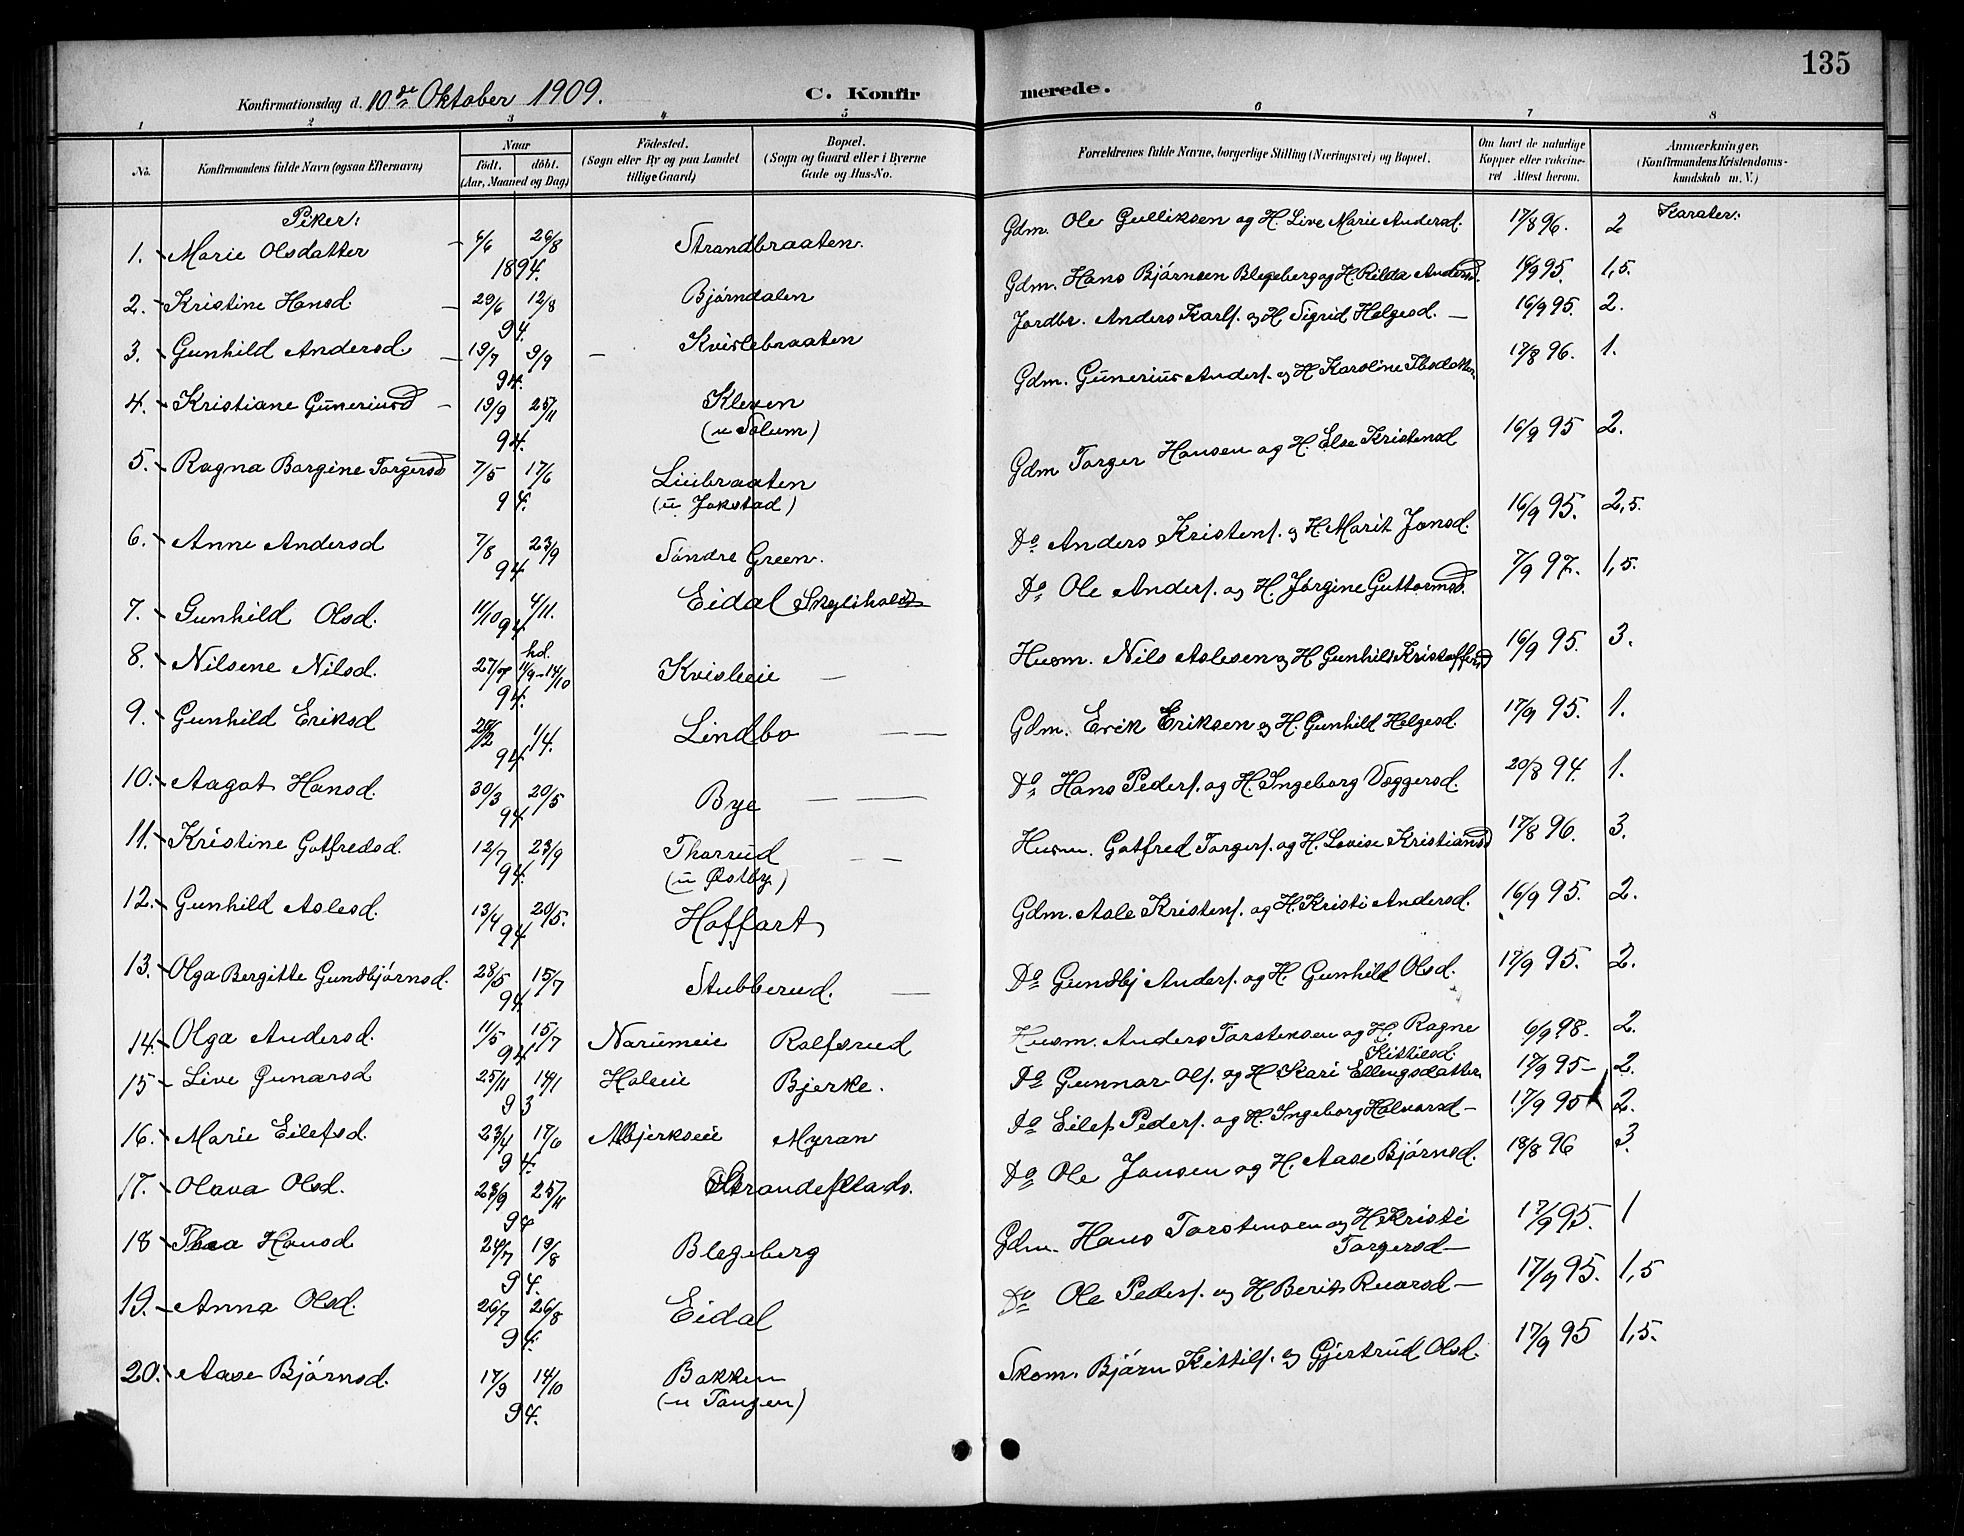 135
Konfirmationsdag d. 10de Oktober 1909.
C. Konfir
merede.
1 2 3 4 5 6 7 8
No.
Konfirmandens fulde Navn (ogsaa Efternavn)
Naar
født. døbt.
(Aar, Maaned og Dag)
Födested.
(Sogn eller By og paa Landet
tillige Gaard)
Bopæl.
(Sogn og Gaard eller i Byerne
Gade og Hus-No.
Forældrenes fulde Navne, borgerlige Stilling (Næringsvei) og Bopæl.
Om havt de naturlige
Kopper eller vakcine-
ret Attest herom.
Anmærkninger,
(Konfirmandens Kristendoms-
kundskab m. V.)
Piker:
Karater:
1. Marie Olsdatter 6/6 26/8 Strandbraaten. Gdm. Ole Gulliksen og H. Live Marie Andersd. 17/8 96. 2
1894.
2. Kristine Hansd. 29/6 12/8 Bjørndalen Gdm. Hans Bjørnsen Blegeberg og H. Rilda Andersd. 16/9 95. 1,5.
94.
3. Gunhild Andersd. 19/7 9/9 Kvislebraaten Jordbr. Anders Karls. og H. Sigrid Helgesd. 16/9 95. 2.
94.
4. Kristiane Guneriusd 19/9 25/11 Kleven Gdm. Gunerius Anders. og H. Karoline Ibsdatter 17/8 96. 1.
94. (u Solum)
5. Ragna Bargine Torgersd 7/5 17/6 Liibraaten Gdm Torger Hansen og H. Else Kristensd 16/9 95 2.
94. (u Jokstad)
6. Anne Andersd 7/8 23/9 Söndre Green. Do Anders Kristens. og H. Marit Jonsd. 16/9 95. 2,5.
94
7. Gunhild Olsd. 11/10 4/11. Eidal Do Ole Anders. og H. Jørgine Guttormsd. 7/9 97. 1,5.
94.
hd.
8. Nilsene Nilsd. 27/7 11/9 - 14/10 Kvisleie Husm. Nils Aslesen og H Gunhild Kristoffersd 16/9 95. 3.
94.
9. Gunhild Eriksd 1/4. Lindbo Gdm. Erik Eriksen og H. Gunhild Helgesd. 17/9 95. 1.
94
10. Aagot Hansd. 30/3 20/5 Bye Do Hans Peders. og H. Ingeborg Vœggersd. 20/8 94. 1.
94
11. Kristine Gotfredsd. 12/7 23/9 Thorrud Husm. Gotfred Torgers. og H. Lovise Kristiansd 17/8 96. 3.
94. (u Østby)
12. Gunhild Aslesd. 13/4 20/5. Hoffart Gdm. Asle Kristens. og H. Kristi Andersd. 16/9 95. 2.
94
13. Olga Bergitte Gundbjørnsd. 28/5 15/7 Stubberud. Do Gundbj Anders. og H. Gunhild Olsd. 17/9 95. 2.
94
14. Olga Andersd. 11/5 15/7 Narumeie Rolfsrud Husm. Anders Torstensen og H. Ragne 6/9 98. 2.
94 Kittilsd.
15 Live Gunarsd 25/11 14/1 Holeie Bjerke. Do Gunnar Ols. og H Kari Ellingsdatter 17/9 95 2.
93
16. Marie Eilefsd. 23/4 17/6 Bjerkseie Myran Do Eilef Peders. og H. Ingeborg Halvorsd 17/9 95 2.
94.
17. Olava Olsd. 23/9 25/11 Do Ole Jonsen og H. Aase Bjørnsd. 18/8 96 3.
94
18 Thea Hansd 24/7 19/8 Blegeberg Gdm. Hans Torstensen og H. Kristi 17/9 95. 1
94. Torgersd
19. Anna Olsd. 26/7 26/8 Eidal Do Ole Peders. og H Berit Roarsd 17/9 95. 1,5
94.
20. Aase Bjørnsd. 17/9 14/10 Bakken Skom. Bjørn Kittils. og Gjertrud Olsd. 17/9 95 1,5.
94. (u Tangen)